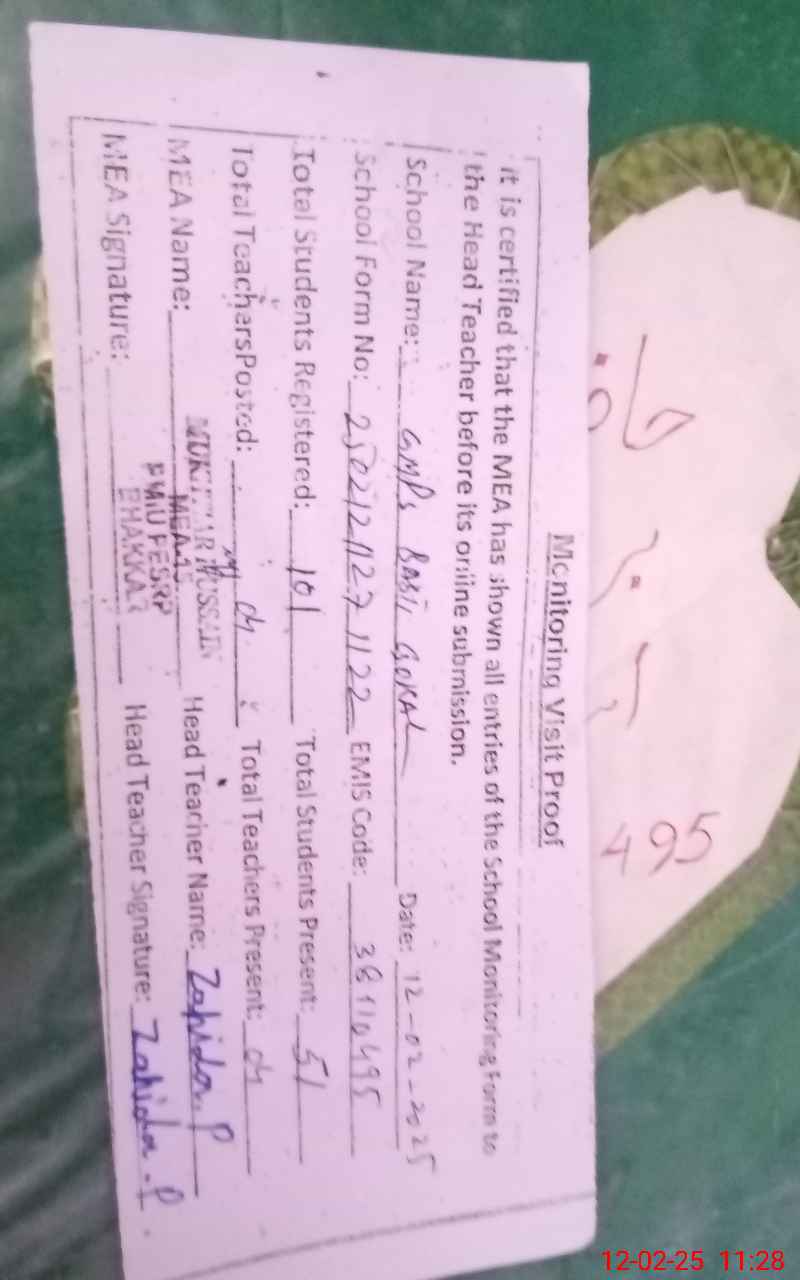 Monitoring Visit Proof
It is certified that the MEA has shown all entries of the School Monitoring Form to
the Head Teacher before its online submission.
School Name: GMPS BASTI GOKAL Date: 12-02-2025
School Form No: 25021211271122 EMIS Code: 38110495
Total Students Registered: 101 Total Students Present: 51
Total Teachers Posted: 04 Total Teachers Present: 04
MEA Name: MUKHTAR HUSSAIN Head Teacher Name: Zahida.P
MEA-15
PMIU PESRP
BHAKKAR
MEA Signature: Head Teacher Signature: Zahida.P
495
12-02-25 11:28